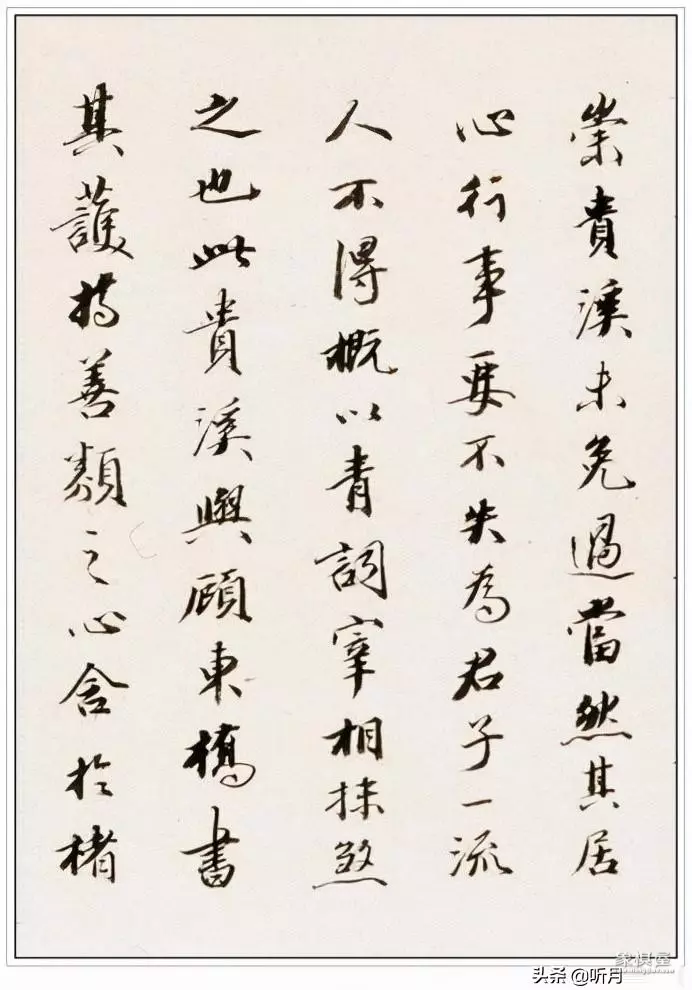 崇貴溪未免過當然其居
心行事要不失為君子一流
人不得概以青詞宰相抹煞
之也此貴溪與顧東橋書
其護持善類之心含於楮
象棋屋
头条 @听月